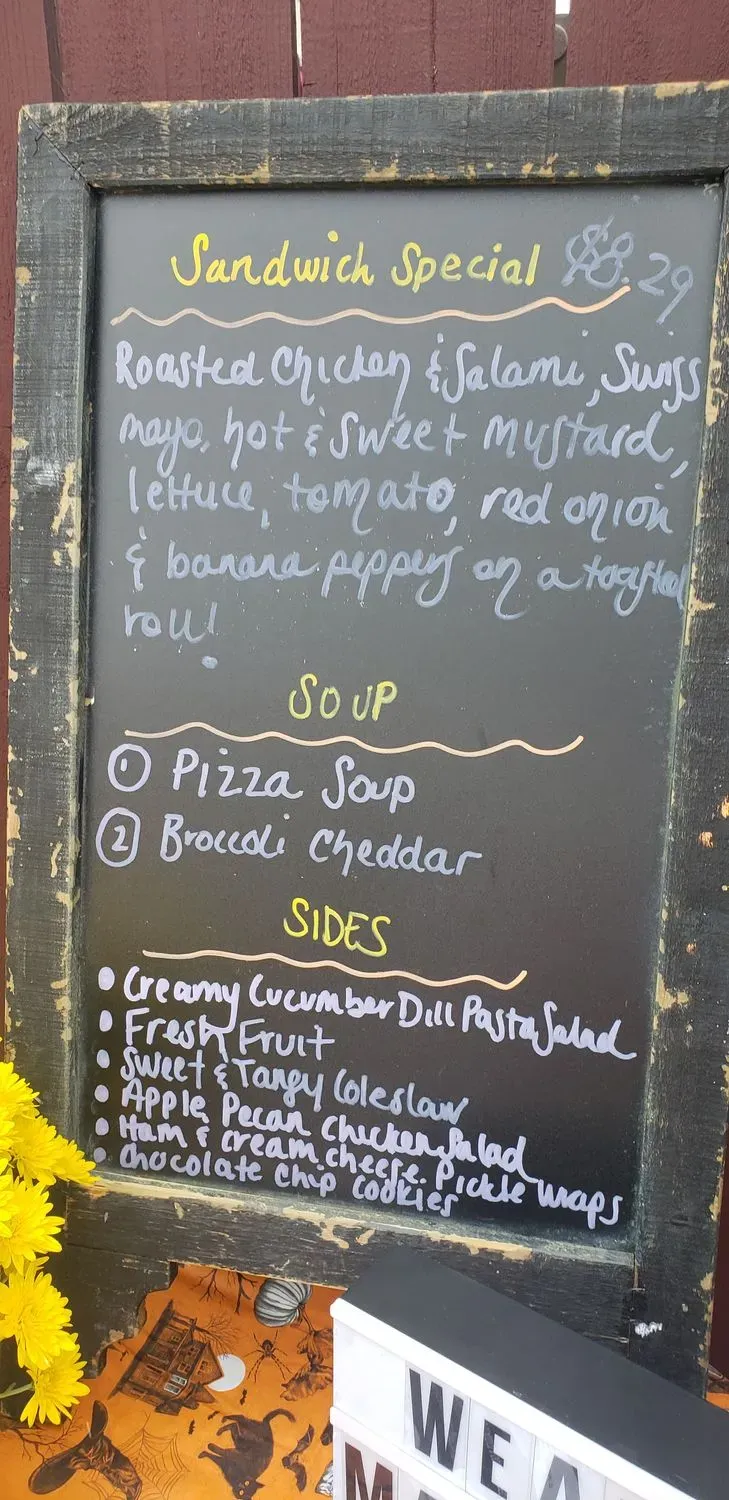 Sandwich Special $8.29
Roasted Chicken & Salami, Swiss
mayo, hot & sweet mustard,
lettuce, tomato, red onion
& banana peppers on a toasted
roll!
SOUP
① Pizza Soup
② Broccoli Cheddar
SIDES
• Creamy Cucumber Dill Pasta Salad
• Fresh Fruit
• Sweet & Tangy Coleslaw
• Apple Pecan Chicken Salad
• Ham & cream cheese Pickle wraps
• Chocolate Chip Cookies
WEA
M